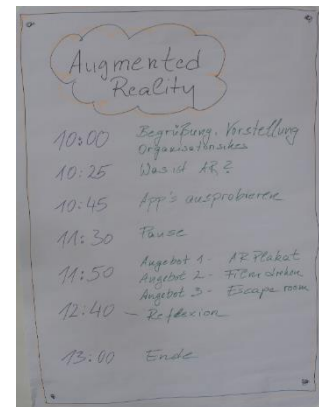 Augmented
Reality
10:00 Begrüßung, Vorstellung
Organisatorisches
10:25 Was ist AR?
10:45 App's ausprobieren
11:30 Pause
11:50 Angebot 1 - AR Plakat
Angebot 2 - Film drehen
Angebot 3 - Escape room
12:40 - Reflexion
13:00 Ende